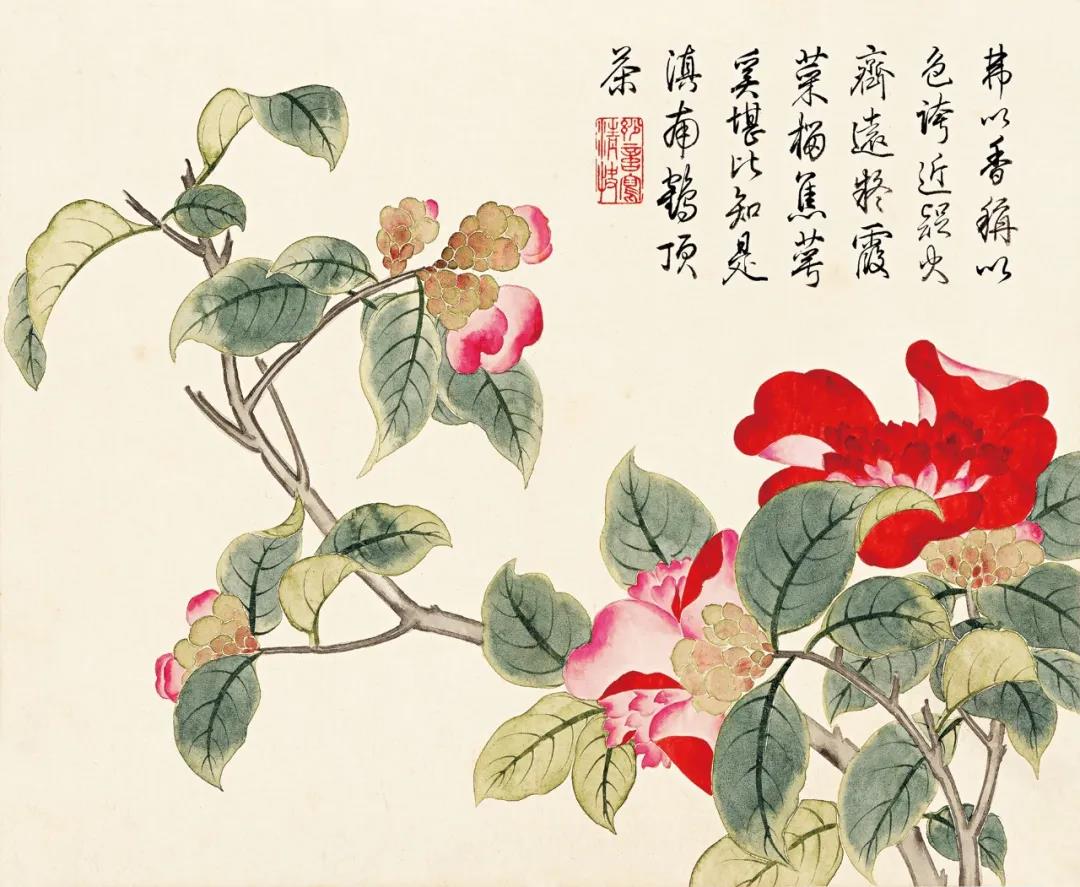 弗以香稱以
色誇近誤火
齊遠疑霞
榴蕉萼
奚堪比知是
滇南鶴頂
茶